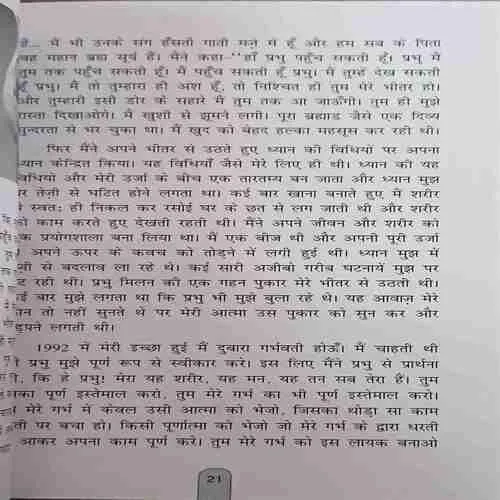 है... मैं भी उनके संग हँसती गाती मज़े में हूँ और हम सब के पिता
वह महान ब्रह्म सूर्य हैं। मैंने कहा–"हाँ प्रभु पहुँच सकती हूँ। प्रभु मैं
तुम तक पहुँच सकती हूँ। मैं पहुँच सकती हूँ प्रभु। मैं तुम्हें देख सकती
हूँ प्रभु। मैं तो तुम्हारा ही अंश हूँ, तो निश्चित ही तुम मेरे भीतर हो।
और तुम्हारी इसी डोर के सहारे मैं तुम तक आ जाऊँगी। तुम ही मुझे
रास्ता दिखाओगे। मैं खुशी से झूमने लगी। पूरा ब्रह्माड जैसे एक दिव्य
सुन्दरता से भर चुका था। मैं खुद को बेहद हल्का महसूस कर रही थी।
फिर मैंने अपने भीतर से उठते हुए ध्यान की विधियों पर अपना
ध्यान केन्द्रित किया। यह विधियाँ जैसे मेरे लिए ही थी। ध्यान की यह
विधियो और मेरी उर्जा के बीच एक तारतम्य बन जाता और ध्यान मुझ
पर तेज़ी से घटित होने लगता था। कई बार खाना बनाते हुए मैं शरीर
से स्वतः ही निकल कर रसोई घर के छत से लग जाती थी और शरीर
को काम करते हुए देखती रहती थी। मैंने अपने जीवन और शरीर को
एक प्रयोगशाला बना लिया था। मैं एक बीज थी और अपनी पूरी उर्जा
से अपने ऊपर के कवच को तोड़ने में लगी हुई थी। ध्यान मुझ में
तेज़ी से बदलाव ला रहे थे। कई सारी अजीबो गरीब घटनायें मुझ पर
घट रही थी। प्रभु मिलन की एक गहन पुकार मेरे भीतर से उठती थी।
कई बार मुझे लगता था कि प्रभु भी मुझे बुला रहे थे। यह आवाज़ मेरे
तन तो नहीं सुनते थे पर मेरी आत्मा उस पुकार को सुन कर और
तड़पने लगती थी।
1992 में मेरी इच्छा हुई मैं दुबारा गर्भवती होऊँ। मैं चाहती थी
प्रभु मुझे पूर्ण रूप से स्वीकार करे। इस लिए मैंने प्रभु से प्रार्थना
की, कि हे प्रभु! मेरा यह शरीर, यह मन, यह तन सब तेरा हैं। तुम
इसका पूर्ण इस्तेमाल करो, तुम मेरे गर्भ का भी पूर्ण इस्तेमाल करो।
मेरे गर्भ में केवल उसी आत्मा को भेजो, जिसका थोड़ा सा काम
धरती पर बचा हो। किसी पूर्णात्मा को भेजो जो मेरे गर्भ के द्वारा धरती
आकर अपना काम पूर्ण करे। तुम मेरे गर्भ को इस लायक बनाओ
21